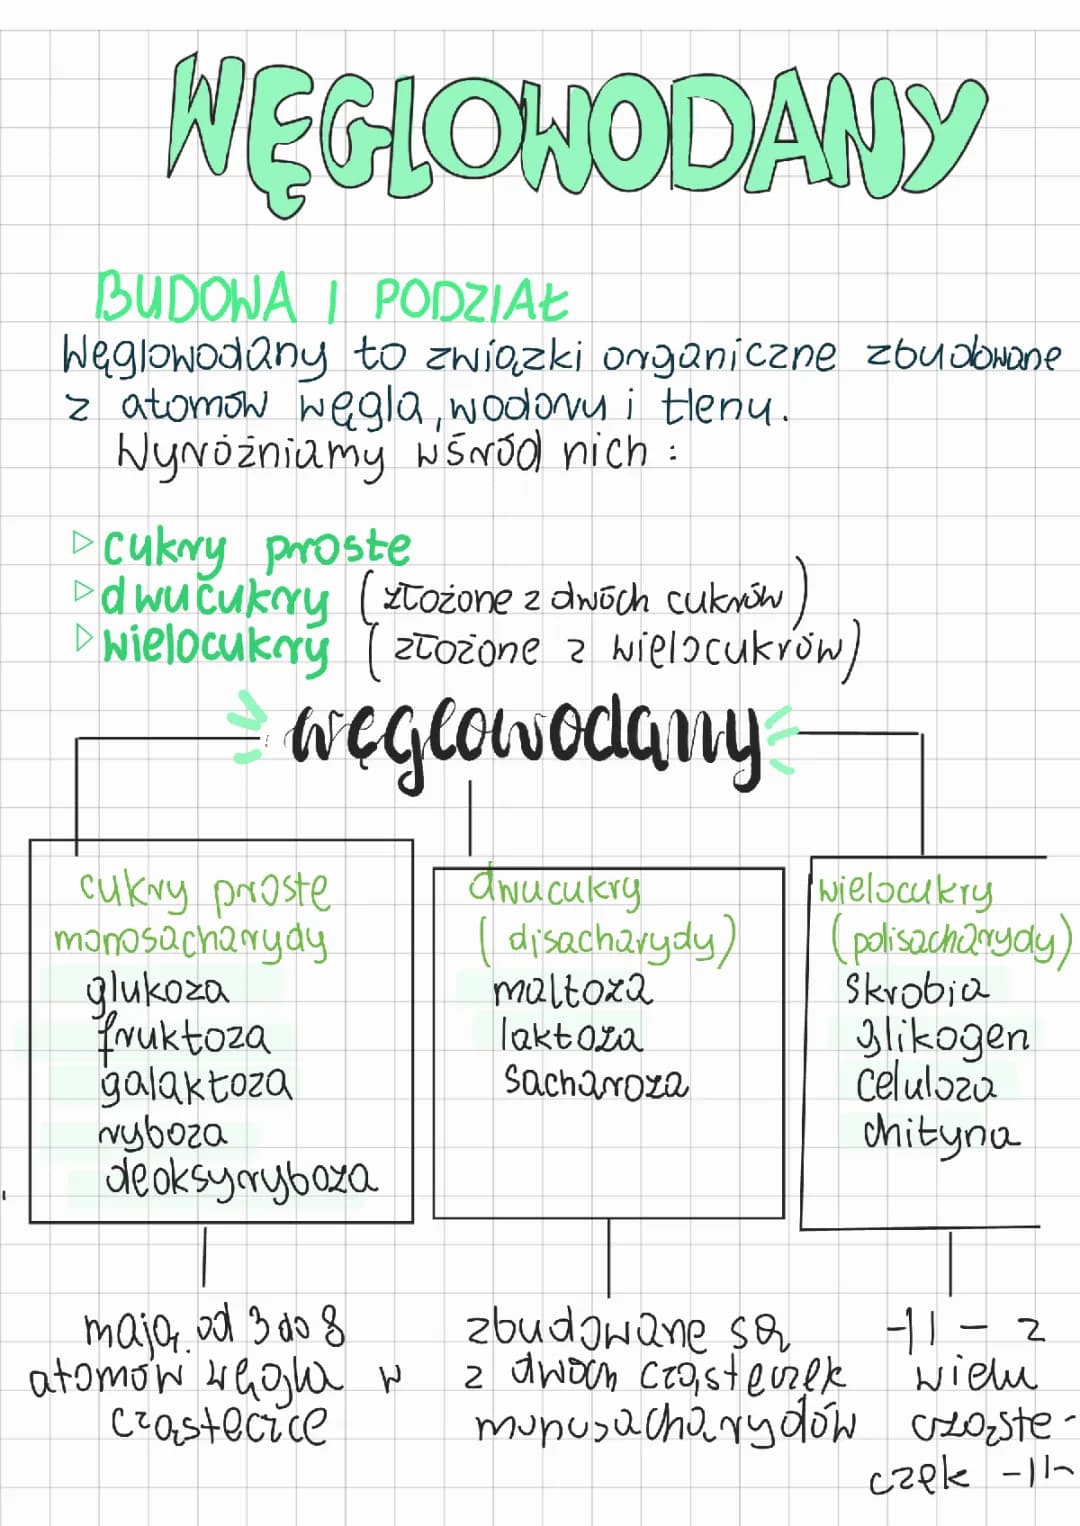 WĘGLOWODANY
BUDOWA I PODZIAŁ
Węglowodany to związki organiczne zbudowane
z atomów węgla, wodoru i tlenu.
Wyróżniamy wśród nich :
▷ cukry proste
▷ dwucukry (złożone z dwóch cukrów)
▷ wielocukry (złożone z wielocukrów)
węglowodany
cukry proste
monosacharydy
glukoza
fruktoza
galaktoza
ryboza
deoksyryboza
mają od 3 do 8
atomów węgla w
cząsteczce
dwucukry
(disacharydy)
maltoza
laktoza
sacharoza
zbudowane są
z dwóch cząsteczek
monosacharydów
wielocukry
(polisacharydy)
skrobia
glikogen
celuloza
chityna
-11- z
wielu
cząste-
czek -11-